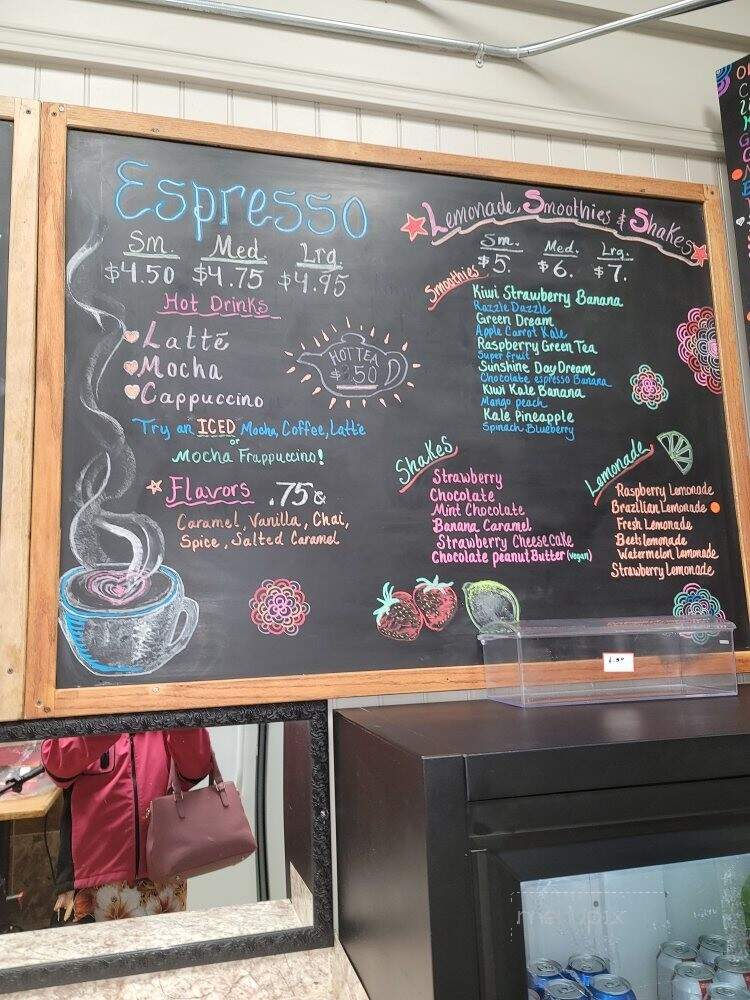 Espresso
Sm. Med. Lrg.
$4.50 $4.75 $4.95
Hot Drinks
Latté
Mocha
Cappuccino
HOT TEA
$2.50
Try an ICED Mocha, Coffee, Latte
or
Mocha Frappuccino!
Flavors .75¢
Caramel, Vanilla, Chai,
Spice, Salted Caramel
Lemonade, Smoothies & Shakes
Sm. Med. Lrg.
$5. $6. $7.
Smoothies
Kiwi Strawberry Banana
Razzle Dazzle
Green Dream
Apple Carrot Kale
Raspberry Green Tea
Super fruit
Sunshine Day Dream
Chocolate espresso Banana
Kiwi Kale Banana
Mango peach
Kale Pineapple
Spinach Blueberry
Shakes
Strawberry
Chocolate
Mint Chocolate
Banana Caramel
Strawberry Cheesecake
Chocolate peanut Butter (vegan)
Lemonade
Raspberry Lemonade
Brazilian Lemonade
Fresh Lemonade
Beets lemonade
Watermelon lemonade
Strawberry Lemonade